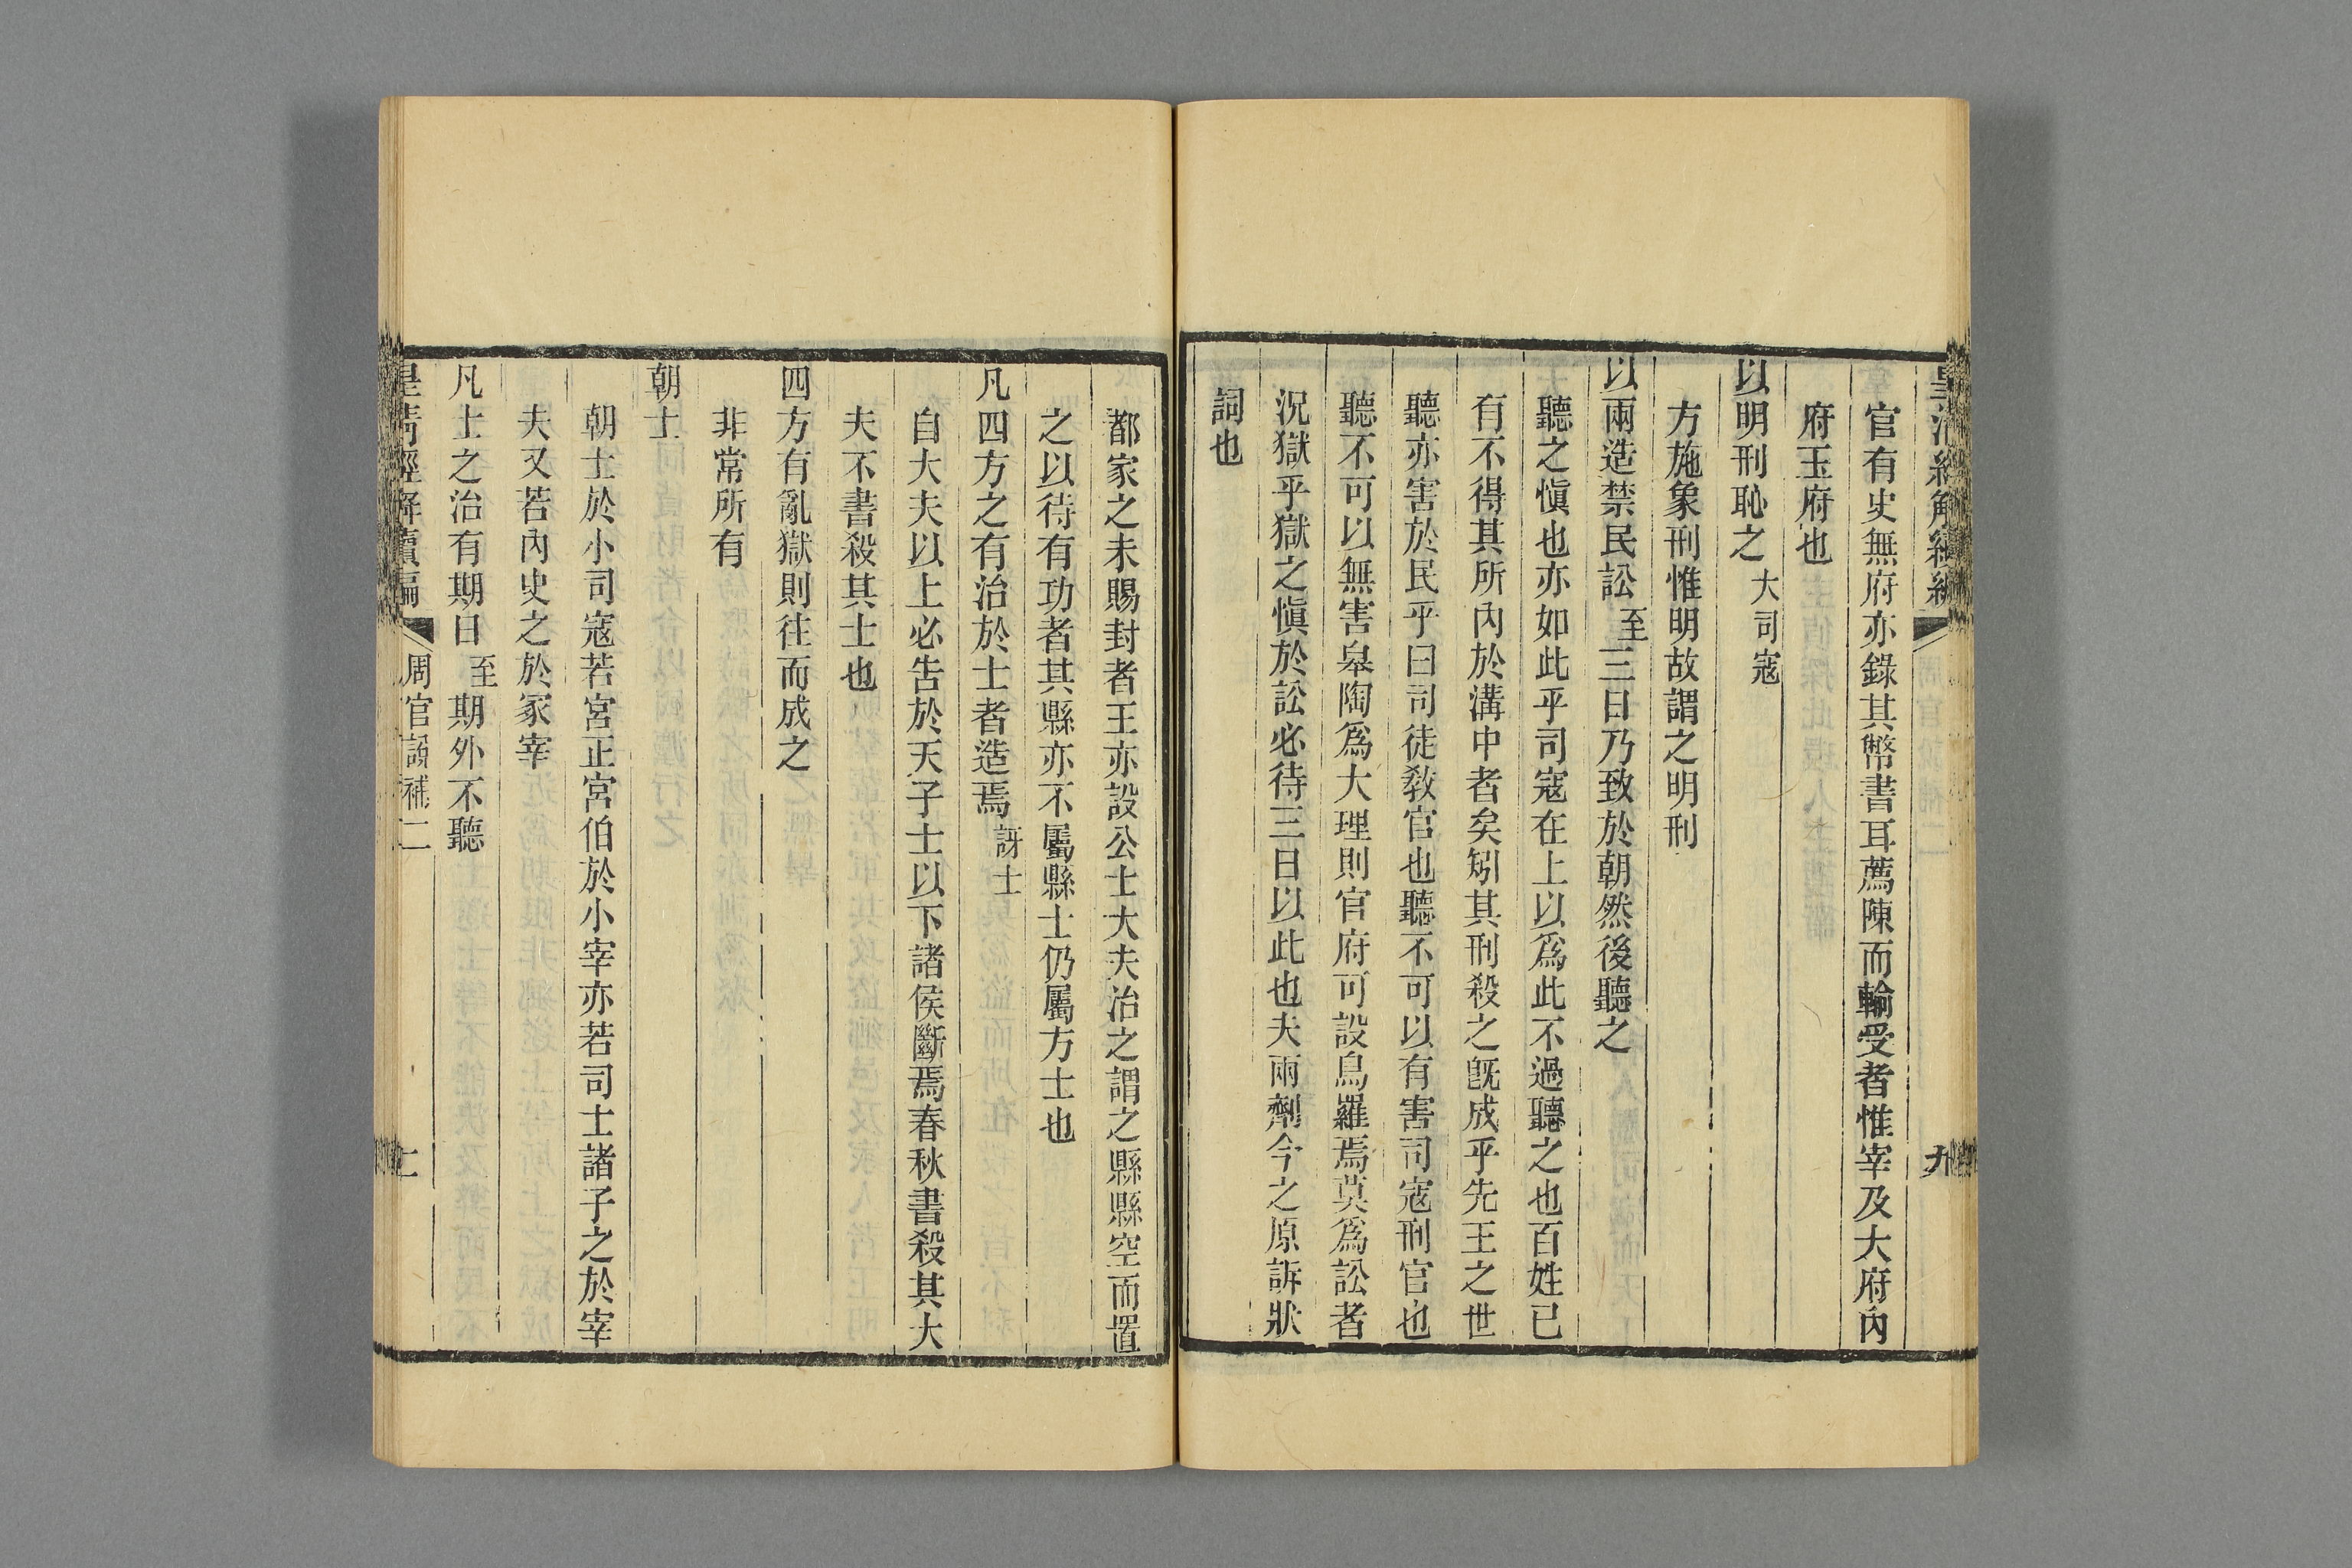 官有史無府亦錄其幣書耳薦陳而輸受者惟宰及大府內
府玉府也
以明刑恥之大司寇
方施象刑惟明故謂之明刑
以兩造禁民訟至三日乃致於朝然後聽之
聽之愼也亦如此乎司寇在上以爲此不過聽之也百姓已
有不得其所內於溝中者矣矧其刑殺之旣成乎先王之世
聽亦害於民乎曰司徒敎官也聽不可以有害司寇刑官也
聽不可以無害皋陶爲大理則官府可設鳥羅焉莫爲訟者
況獄乎獄之愼於訟必待三日以此也夫兩劑今之原訴狀
詞也
九
都家之未賜封者王亦設公士大夫治之謂之縣縣空而置
之以待有功者其縣亦不屬縣士仍屬方士也
凡四方之有治於士者造焉訝士
自大夫以上必告於天子士以下諸侯斷焉春秋書殺其大
夫不書殺其士也
四方有亂獄則往而成之
非常所有
朝士
朝士於小司寇若宮正宮伯於小宰亦若司士諸子之於宰
夫又若內史之於冢宰
凡士之治有期日至期外不聽
皇清經解續編 周官識補二